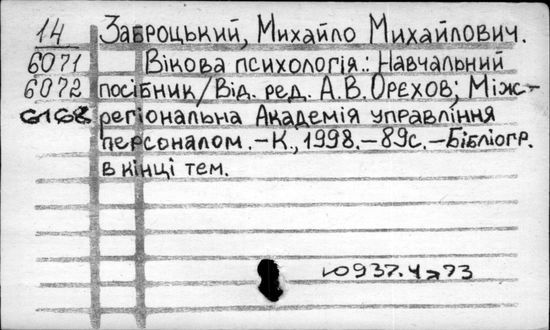 14 Заброцький, Михайло Михайлович.
6071 Вікова психологія.: Навчальний
6072 посібник/Від. ред. А.В. Орехов; Між-
6168 регіональна Академія управління
персоналом. – К., 1998. – 89с. – Бібліогр.
в кінці тем.
ю937.4я73